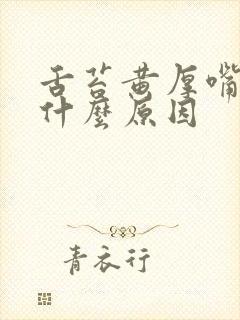 舌苔黄厚嘴
什麼原因
青衣行